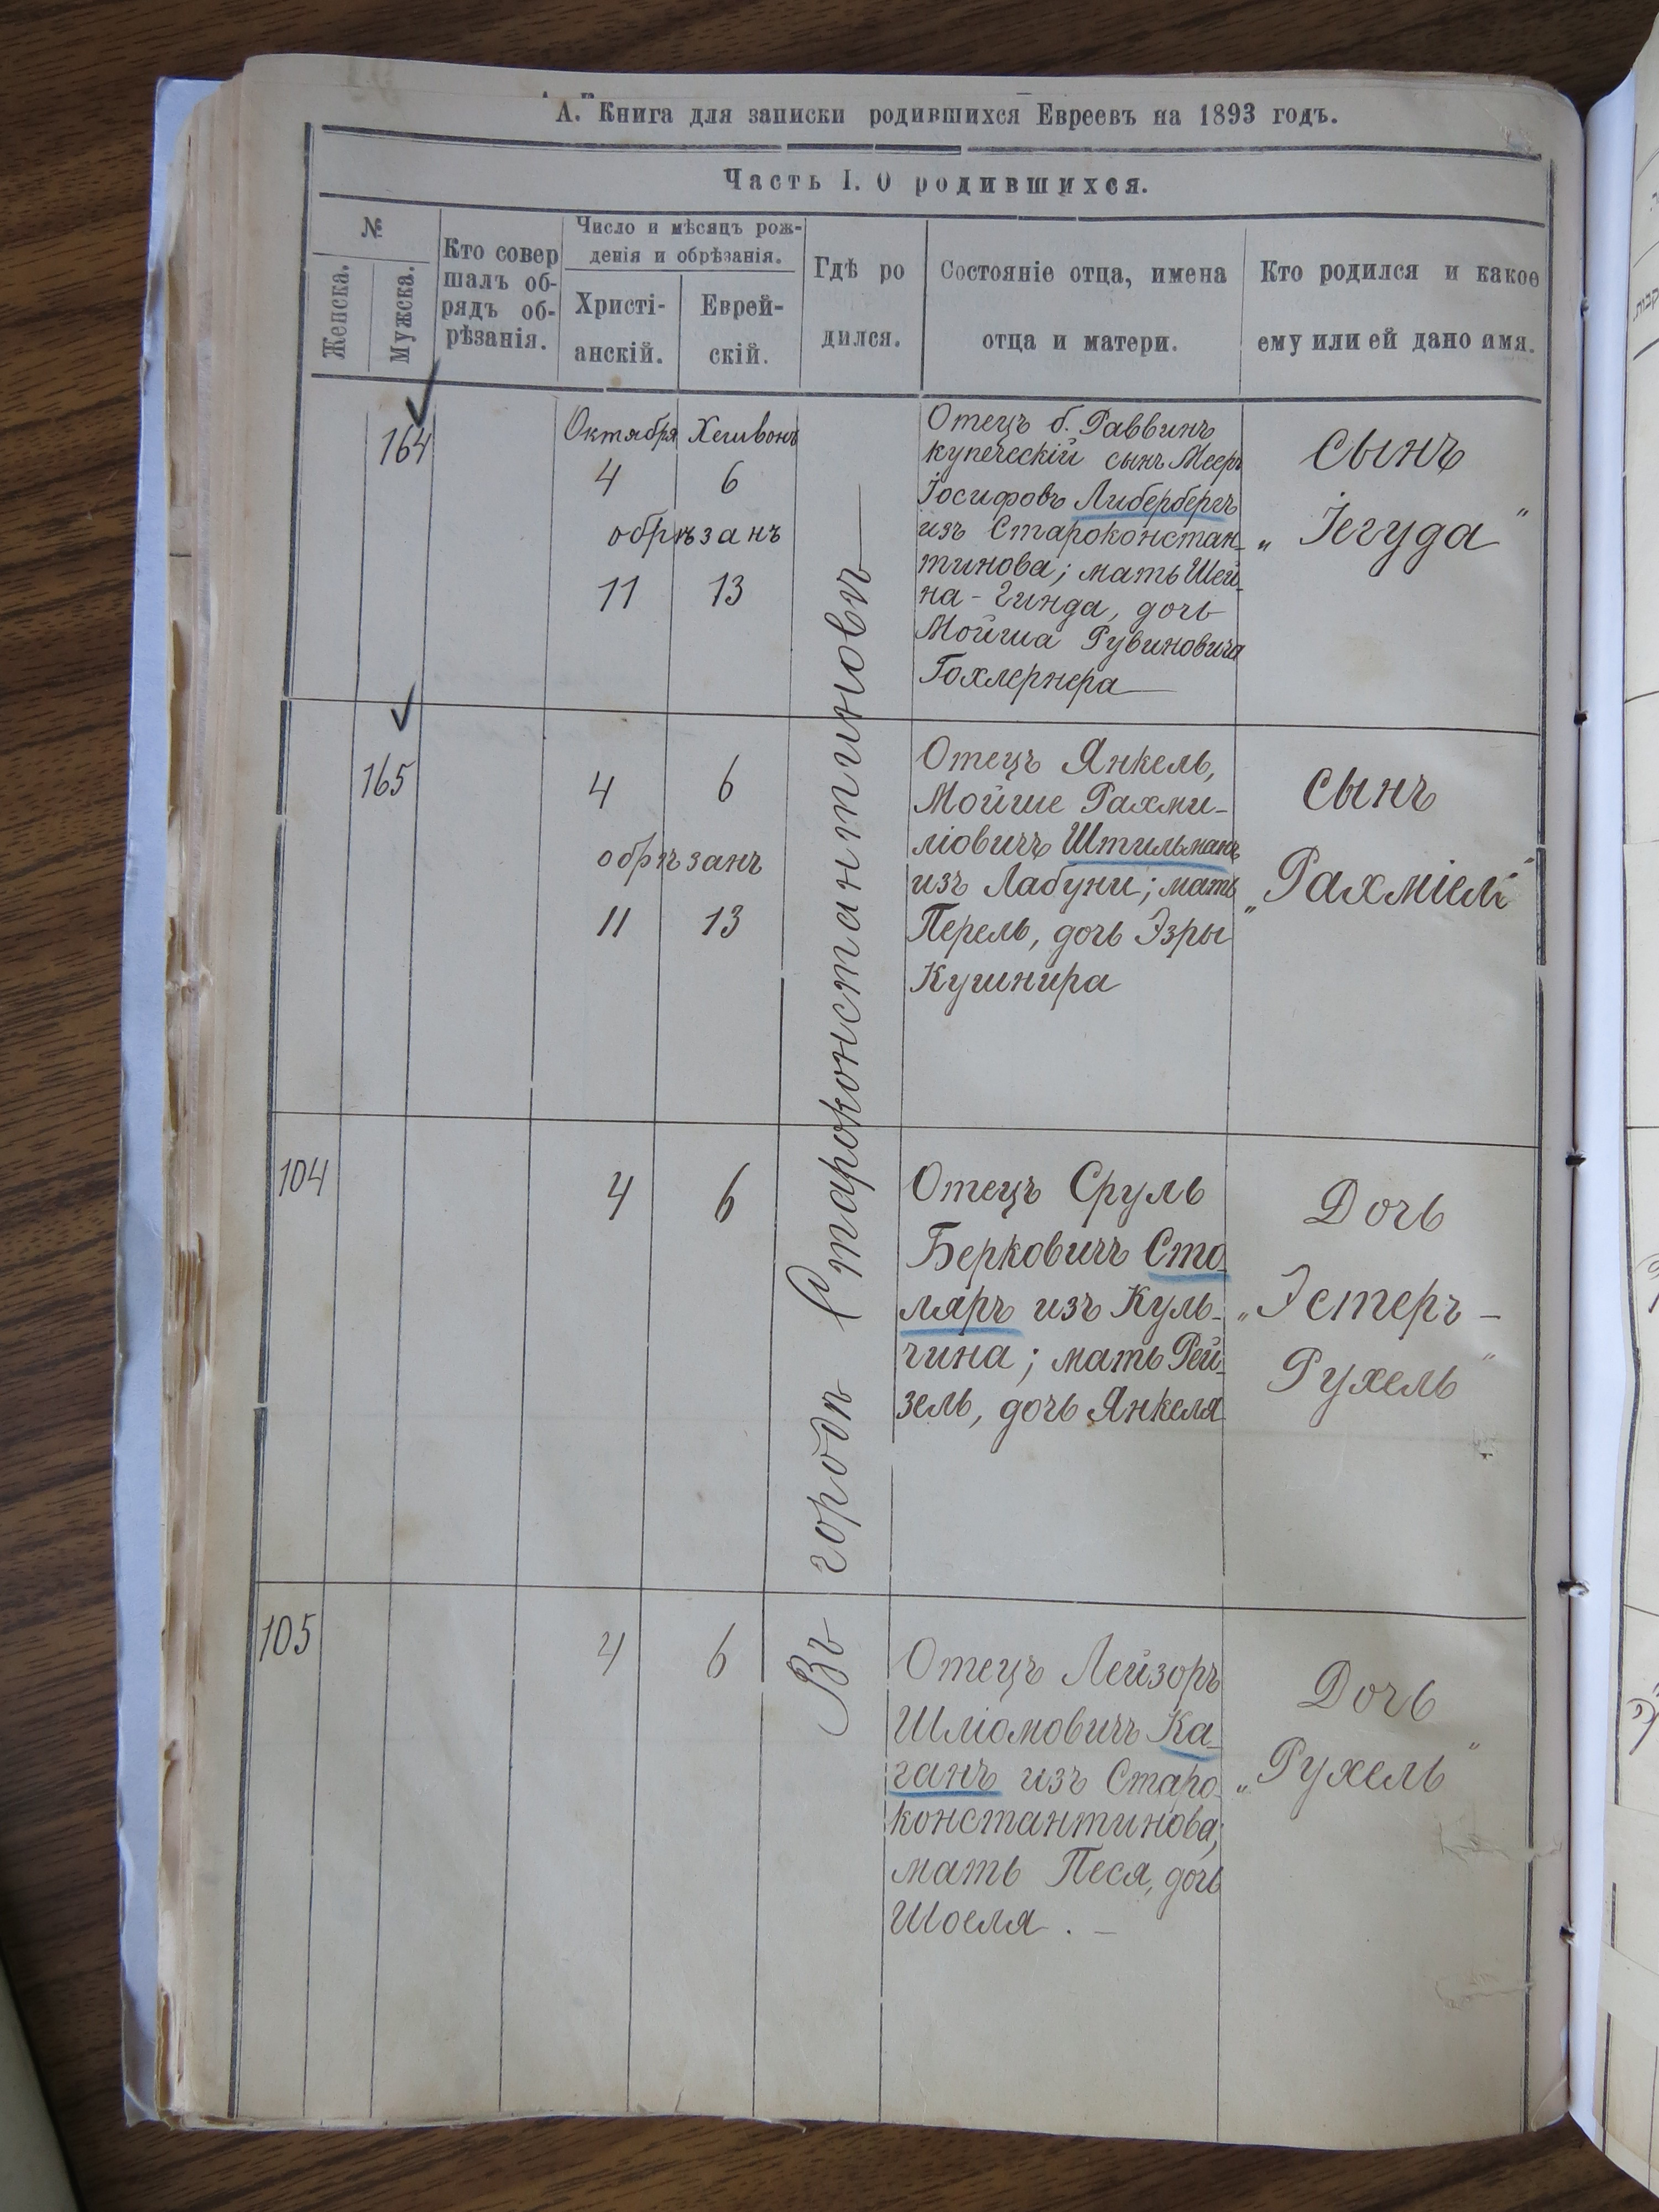 А. Книга для записки родившихся Евреевъ на 1893 годъ.
Часть I. О родившихся.
№
Женска.
Мужска.
Кто совер
шалъ об-
рядъ об-
рѣзанія.
Число и мѣсяцъ рож-
денія и обрѣзанія.
Христі-
анскій.
Еврей-
скій.
Гдѣ ро
дился.
Состояніе отца, имена
отца и матери.
Кто родился и какое
ему или ей дано имя.
164
Октября Хешвонъ
4 6
обрѣзанъ
11 13
Отецъ б. Раввинъ
купеческій сынъ Мееръ
Іосифовъ Либербергъ
изъ Староконстан-
тинова; мать Шей-
на-Гинда, дочь
Мойша Рувиновича
Гохлернера
Сынъ
„Іегуда"
165
4 6
обрѣзанъ
11 13
Отецъ Янкель,
Мойше Рахми-
ліовичъ Штильманъ
изъ Лабуни; мать
Перель, дочь Эзры
Кушнира
Сынъ
„Рахміель"
104
4 6
Отецъ Сруль
Берковичъ Сто-
ляръ изъ Куль-
чина; мать Рей-
зель, дочь Янкеля
Дочь
„Эстеръ-
Рухель"
105
4 6
Отецъ Лейзоръ
Шліомовичъ Ка-
ганъ изъ Старо-
константинова,
мать Песя, дочь
Шоеля.
Дочь
„Рухель"
Въ городѣ Староконстантиновѣ